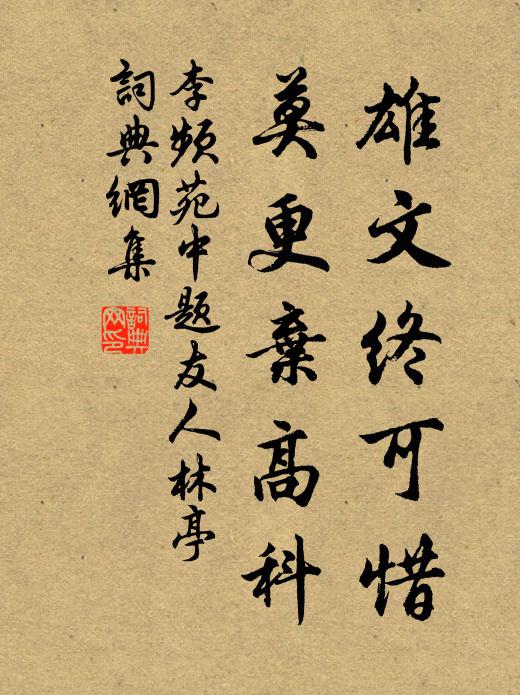 雄文終可惜
莫更棄高科
李頻苑中題友人林亭
詞典網集
詞典网印